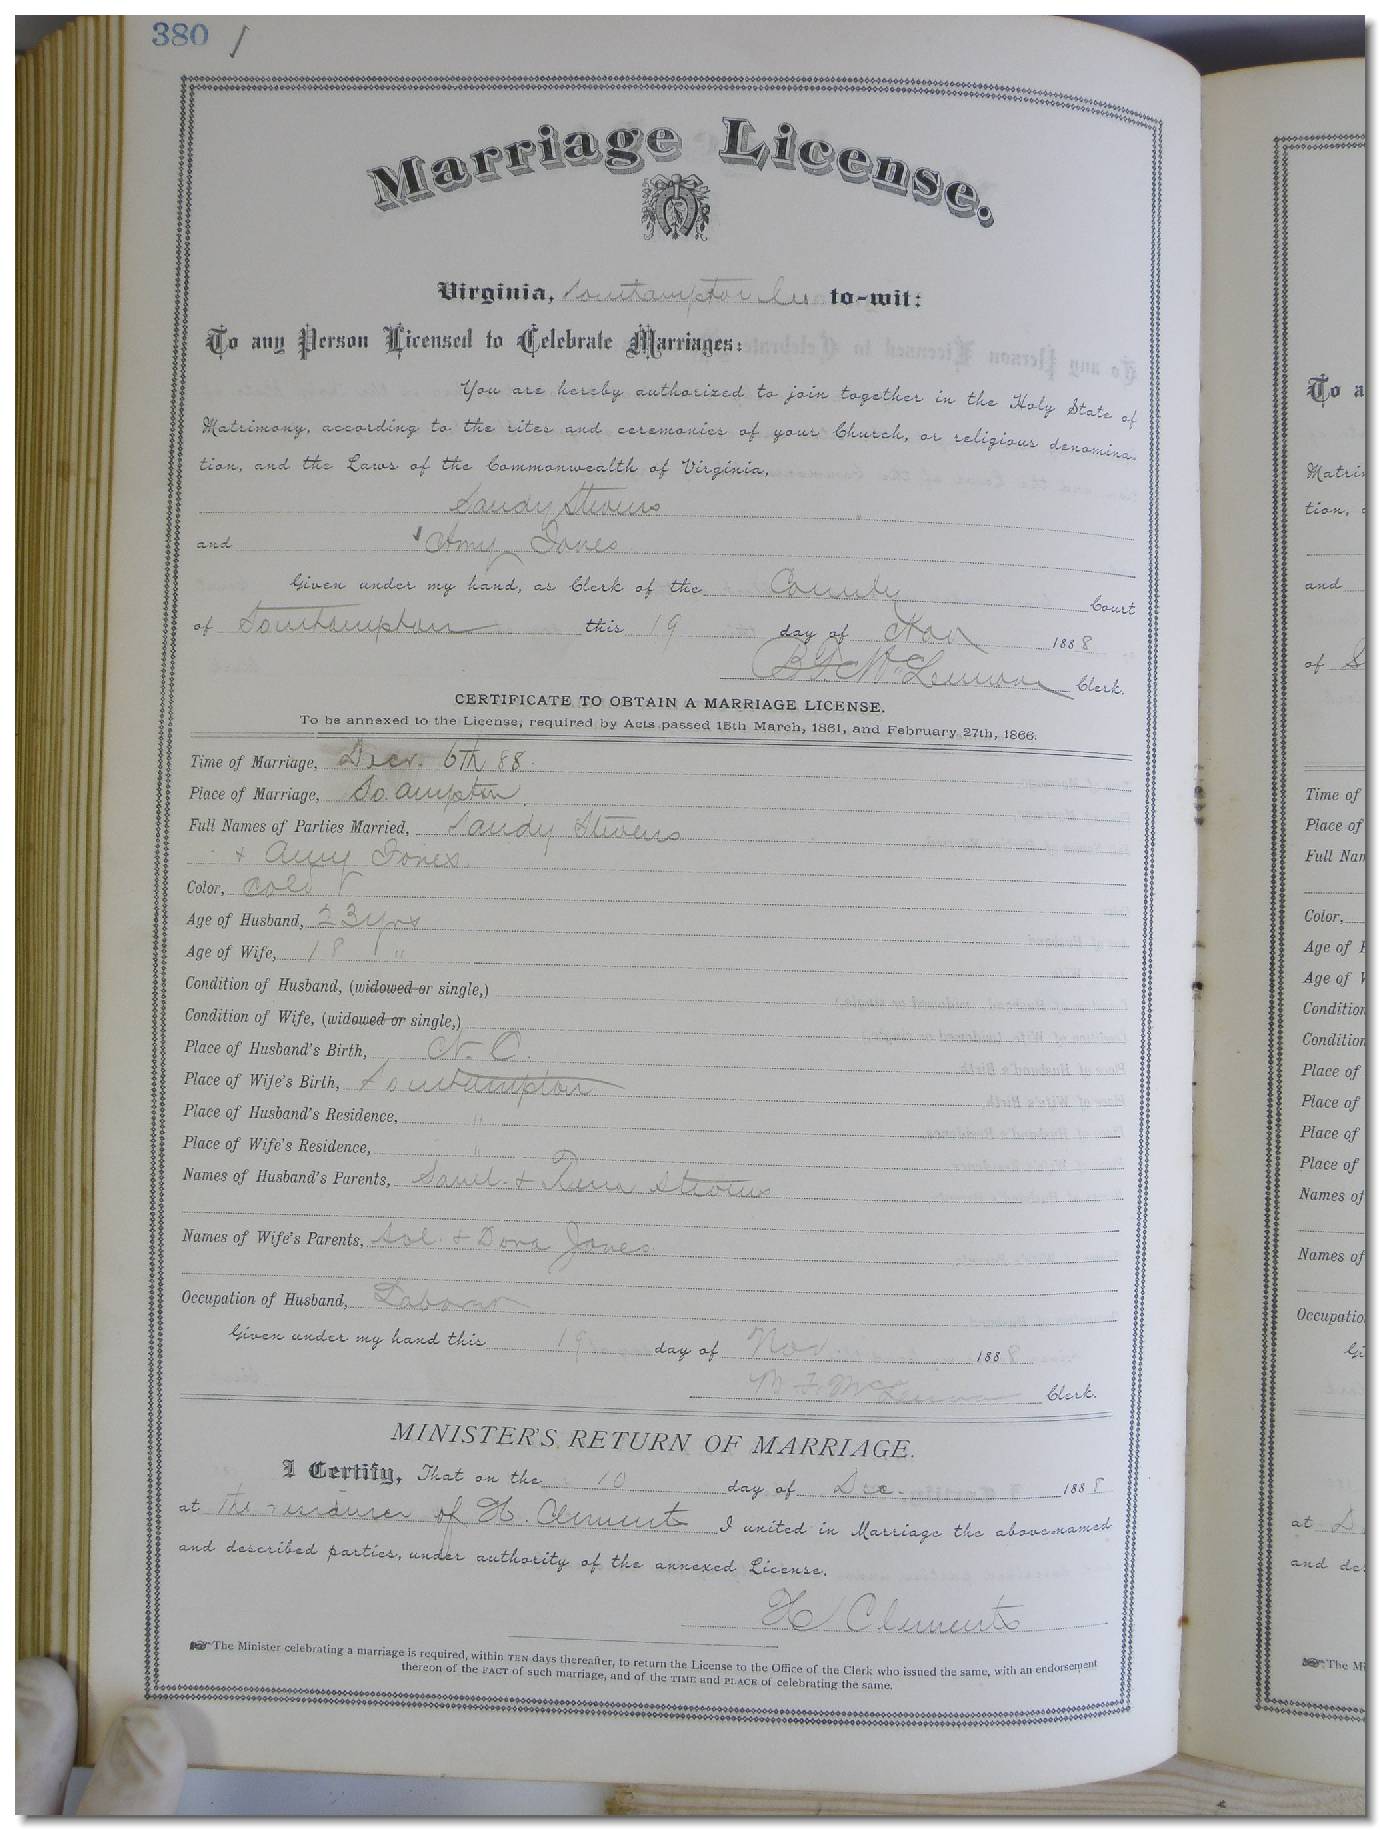 380 /
Marriage License.
Virginia, Southampton Co to-wit:
To any Person Licensed to Celebrate Marriages:
You are hereby authorized to join together in the Holy State of
Matrimony, according to the rites and ceremonies of your Church, or religious denomina-
tion, and the Laws of the Commonwealth of Virginia,
Sandy Stevens
and Amy Jones
Given under my hand, as Clerk of the County Court
of Southampton this 19 day of Nov 1888
B F McLemore Clerk.
CERTIFICATE TO OBTAIN A MARRIAGE LICENSE.
To be annexed to the License, required by Acts passed 15th March, 1861, and February 27th, 1866.
Time of Marriage, Decr. 6th 88.
Place of Marriage, So.ampton
Full Names of Parties Married, Sandy Stevens
+ Amy Jones
Color, cold
Age of Husband, 23 yrs
Age of Wife, 18 "
Condition of Husband, (widowed or single,)
Condition of Wife, (widowed or single,)
Place of Husband's Birth, N. C.
Place of Wife's Birth, Southampton
Place of Husband's Residence, "
Place of Wife's Residence, "
Names of Husband's Parents, Saml + Stevens
Names of Wife's Parents, Sol + Dora Jones
Occupation of Husband, Laborer
Given under my hand this 19 day of Nov 1888
B F McLemore Clerk.
MINISTER'S RETURN OF MARRIAGE.
I Certify, That on the 10 day of Dec. 1888
at the of H. Clements I united in Marriage the above-named
and described parties, under authority of the annexed License.
H Clements
☞The Minister celebrating a marriage is required, within TEN days thereafter, to return the License to the Office of the Clerk who issued the same, with an endorsement
thereon of the FACT of such marriage, and of the TIME and PLACE of celebrating the same.
To a
Matri
tion,
and
of S
Time of
Place of
Full Nam
Color,
Age of H
Age of W
Condition
Condition
Place of
Place of
Place of
Place of
Names of
Names of
Occupatio
Gi
at
and de
☞The Mi